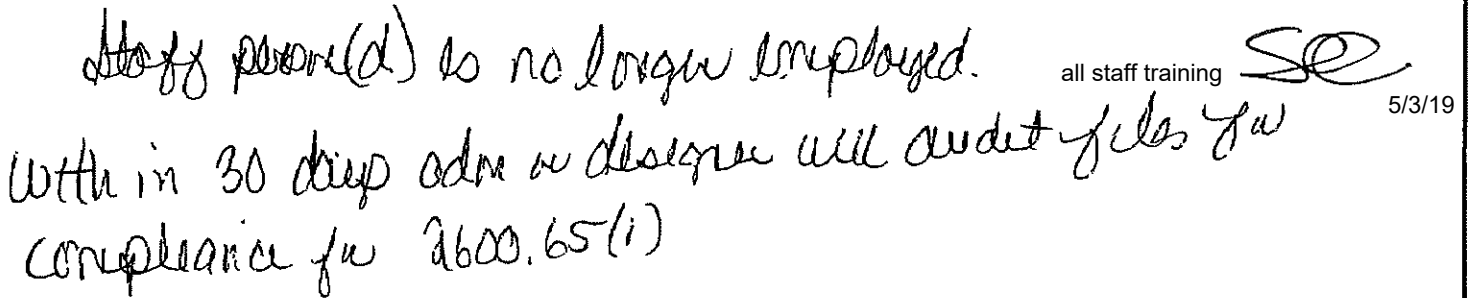 Staff person(d) is no longer employed. all staff training SC
5/3/19
with in 30 days adm or designee will audit files for
compliance for 2600.65(i)